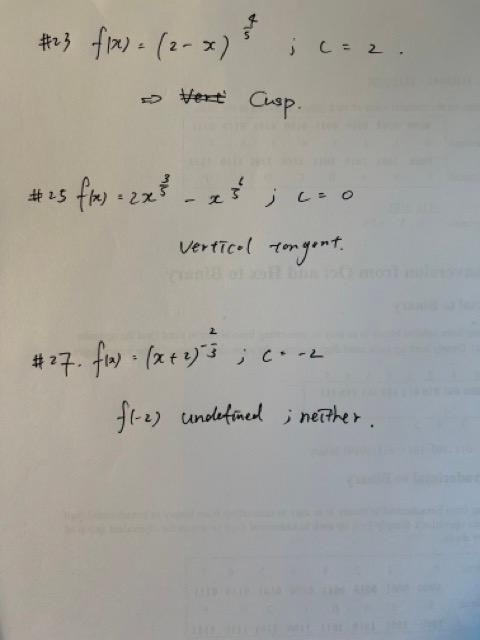 #23 f(x) = (2 - x)^{4/5} ; c = 2 .
⇒ Cusp.
#25 f(x) = 2x^{3/5} - x^{6/5} ; c = 0
Vertical tangent.
#27. f(x) = (x+2)^{-2/3} ; c = -2
f(-2) undefined ; neither .